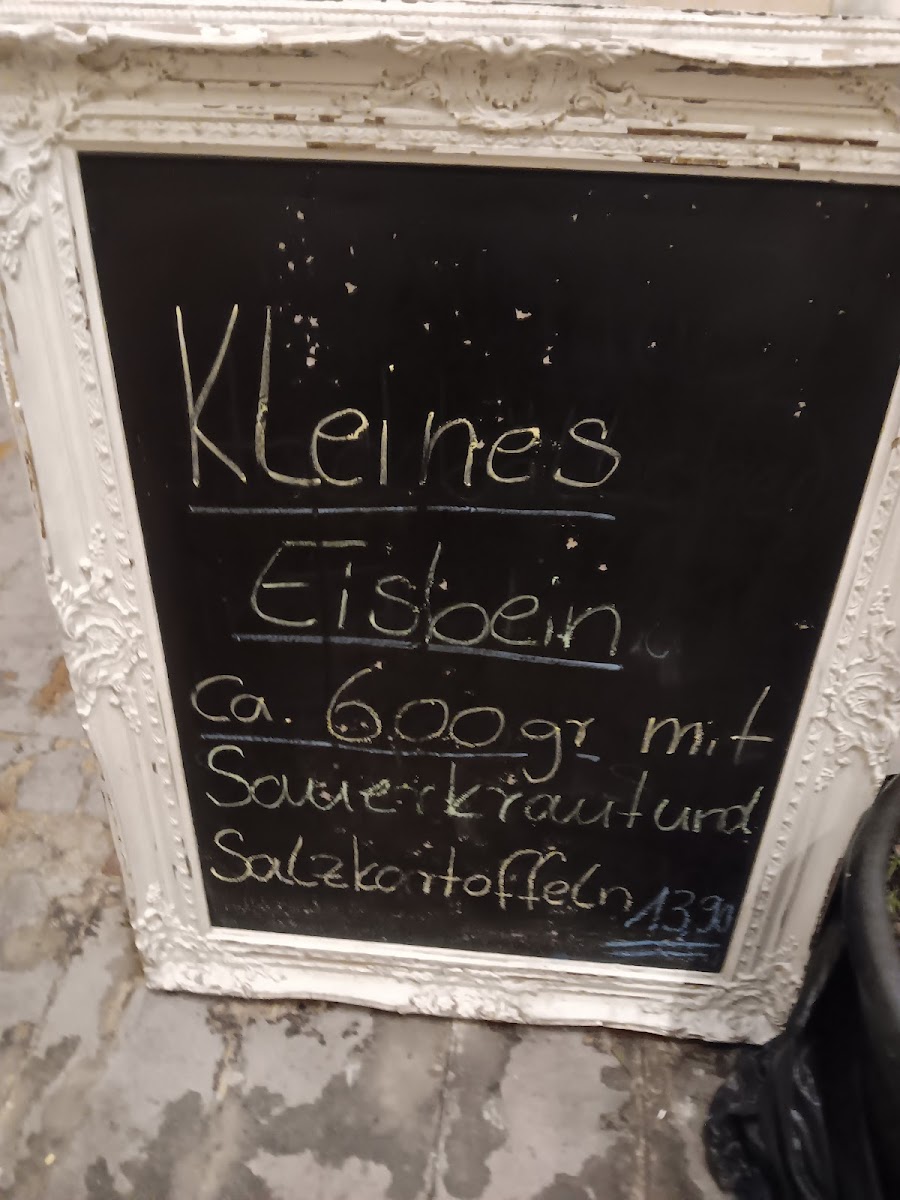 Kleines
Eisbein
ca. 600gr mit
Sauerkraut und
Salzkartoffeln 13,90